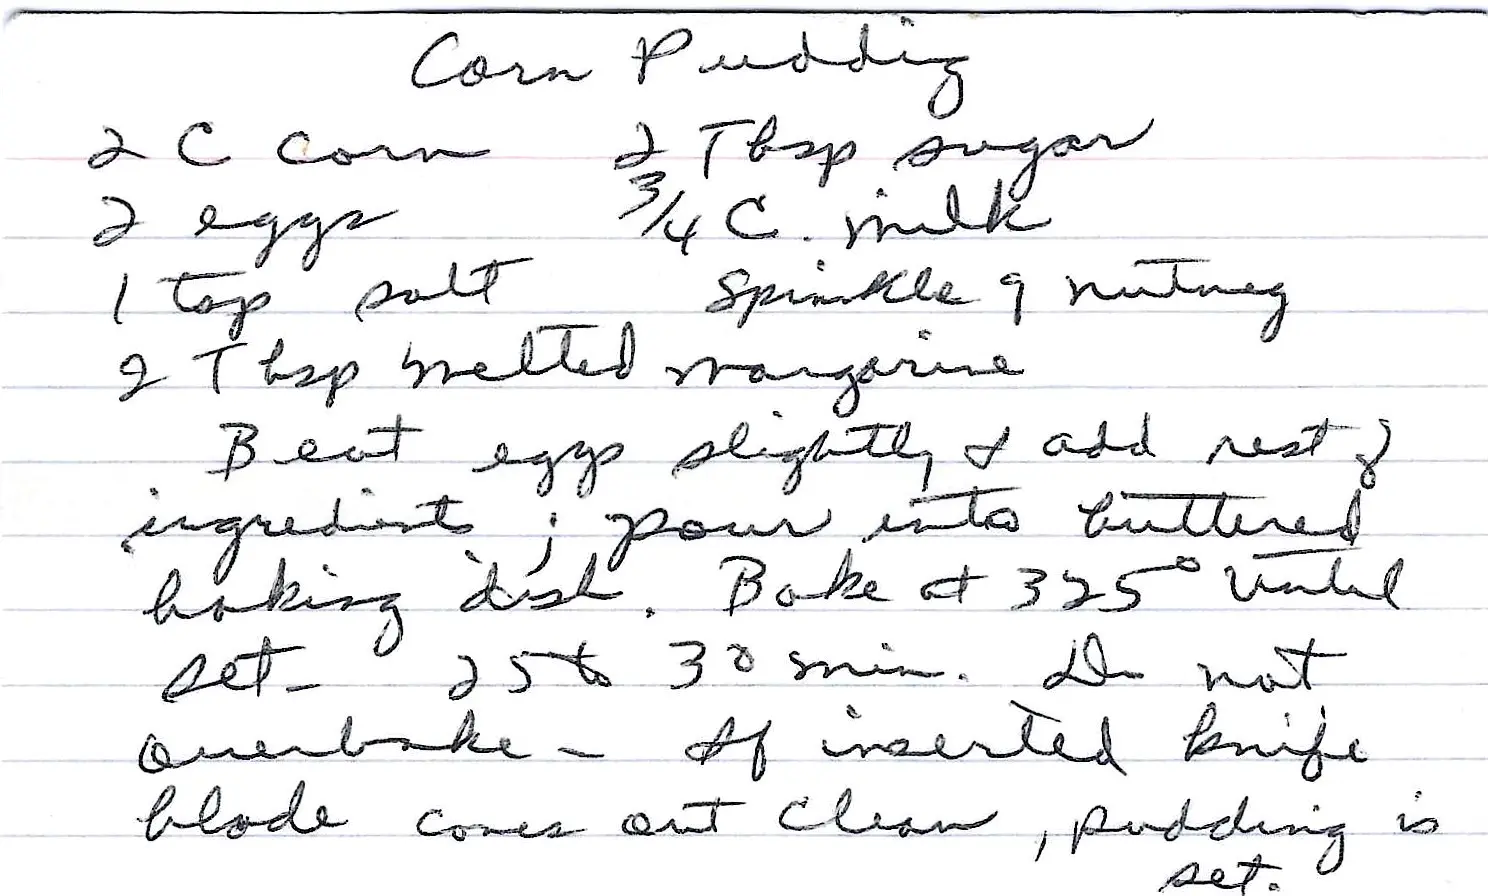 Corn Pudding
2 C corn 2 Tbsp sugar
2 eggs 3/4 C. milk
1 tsp salt Sprinkle of nutmeg
2 Tbsp melted margarine
Beat eggs slightly & add rest of
ingredients; pour into buttered
baking dish. Bake at 325° until
set - 25 to 30 min. Do not
overbake - If inserted knife
blade comes out clean, pudding is
set.